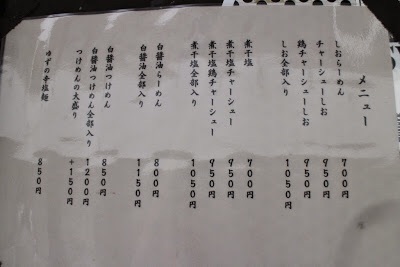 メニュー
しおらーめん 700円
チャーシューしお 950円
鶏チャーシューしお 950円
しお全部入り 1050円
煮干塩 700円
煮干塩チャーシュー 950円
煮干塩鶏チャーシュー 950円
煮干塩全部入り 1050円
白醤油らーめん 800円
白醤油全部入り 1150円
白醤油つけめん 850円
白醤油つけめん全部入り 1200円
つけめんの大盛り +150円
ゆずの辛塩麺 850円